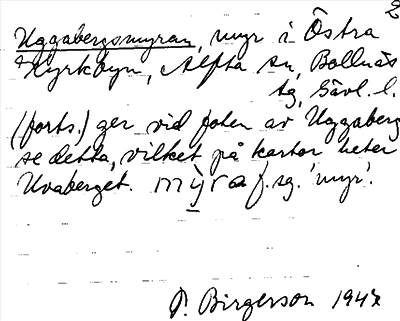 2
Uggabergsmyran, myr i Östra
Kyrkbyn, Alfta sn, Bollnäs
tg, Gävl. l.
(forts.) ger vid foten av Uggaberg
se detta, vilket på kartor heter
Uvaberget. my̱ra f. sg. 'myr'.
P. Birgerson 1947